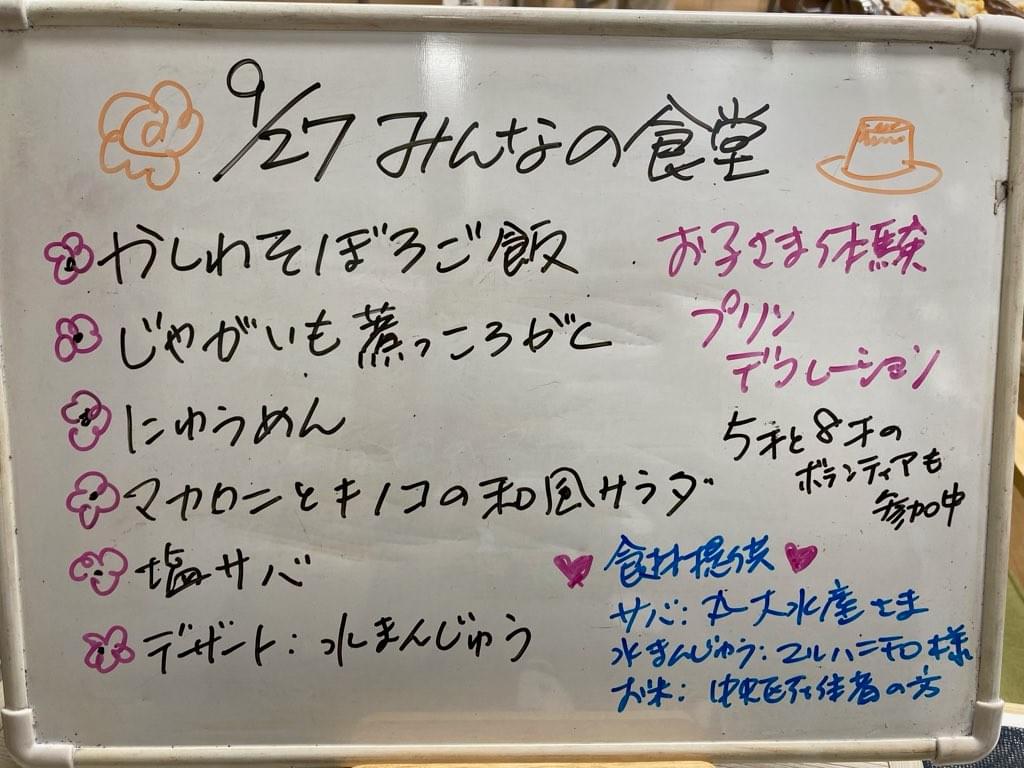 9/27 みんなの食堂
かしわそぼろご飯
じゃがいも煮っころがし
にゅうめん
マカロニとキノコの和風サラダ
塩サバ
デザート：水まんじゅう
お子さま体験
プリン
デコレーション
5才と8才の
ボランティアも
参加中
食材提供
サバ：大水産さま
水まんじゅう：マルハニチロ様
お米：中央区在住者の方